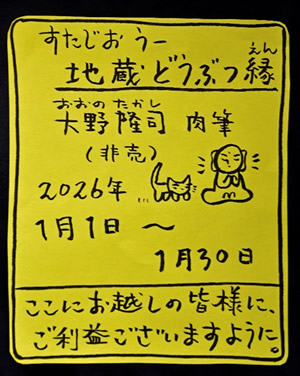 すたじおうー
えん
地蔵どうぶつ縁
おおのたかし
大野隆司 肉筆
(非売)
2026年
1月1日〜
1月30日
ここにお越しの皆様に、
ご利益ございますように。